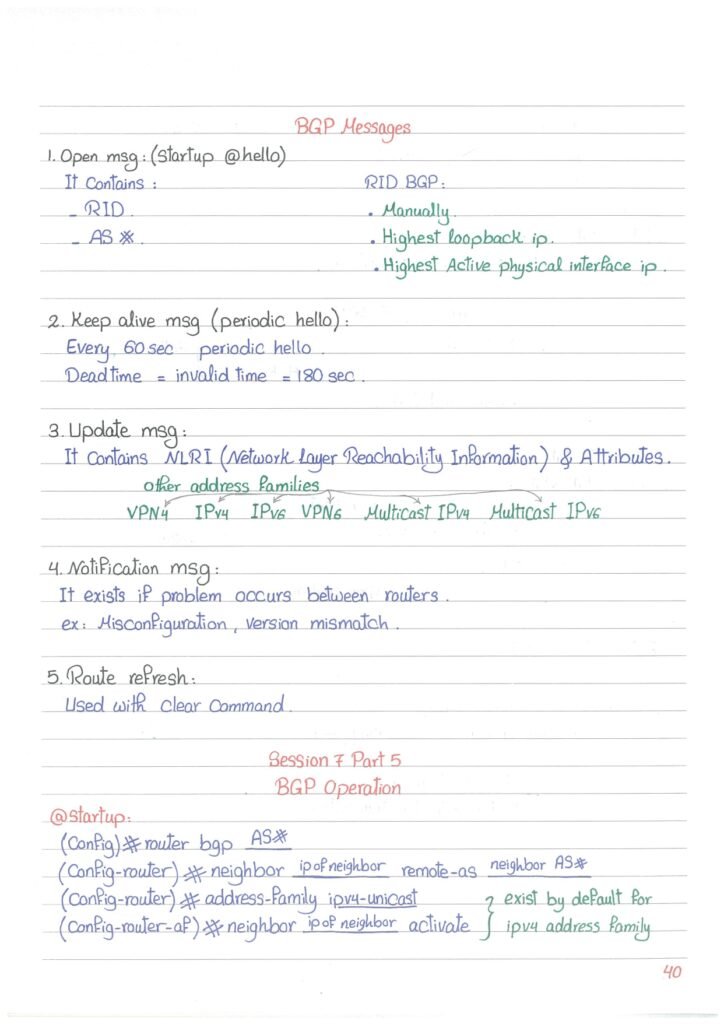 BGP Messages
1. Open msg: (startup @hello)
It Contains :
RID BGP:
- RID.
. Manually.
- AS #.
. Highest loopback ip.
. Highest Active physical interface ip.
2. Keep alive msg (periodic hello):
Every 60 sec periodic hello.
Dead time = invalid time = 180 sec.
3. Update msg:
It Contains NLRI (Network Layer Reachability Information) & Attributes.
other address families
VPN4 IPv4 IPv6 VPN6 Multicast IPv4 Multicast IPv6
4. Notification msg:
It exists if problem occurs between routers.
ex: Misconfiguration, version mismatch.
5. Route refresh:
Used with clear Command.
Session 7 Part 5
BGP Operation
@startup:
(Config)# router bgp AS#
(Config-router)# neighbor ip of neighbor remote-as neighbor AS#
(Config-router)# address-family ipv4-unicast } exist by default for
(Config-router-af)# neighbor ip of neighbor activate } ipv4 address family
40